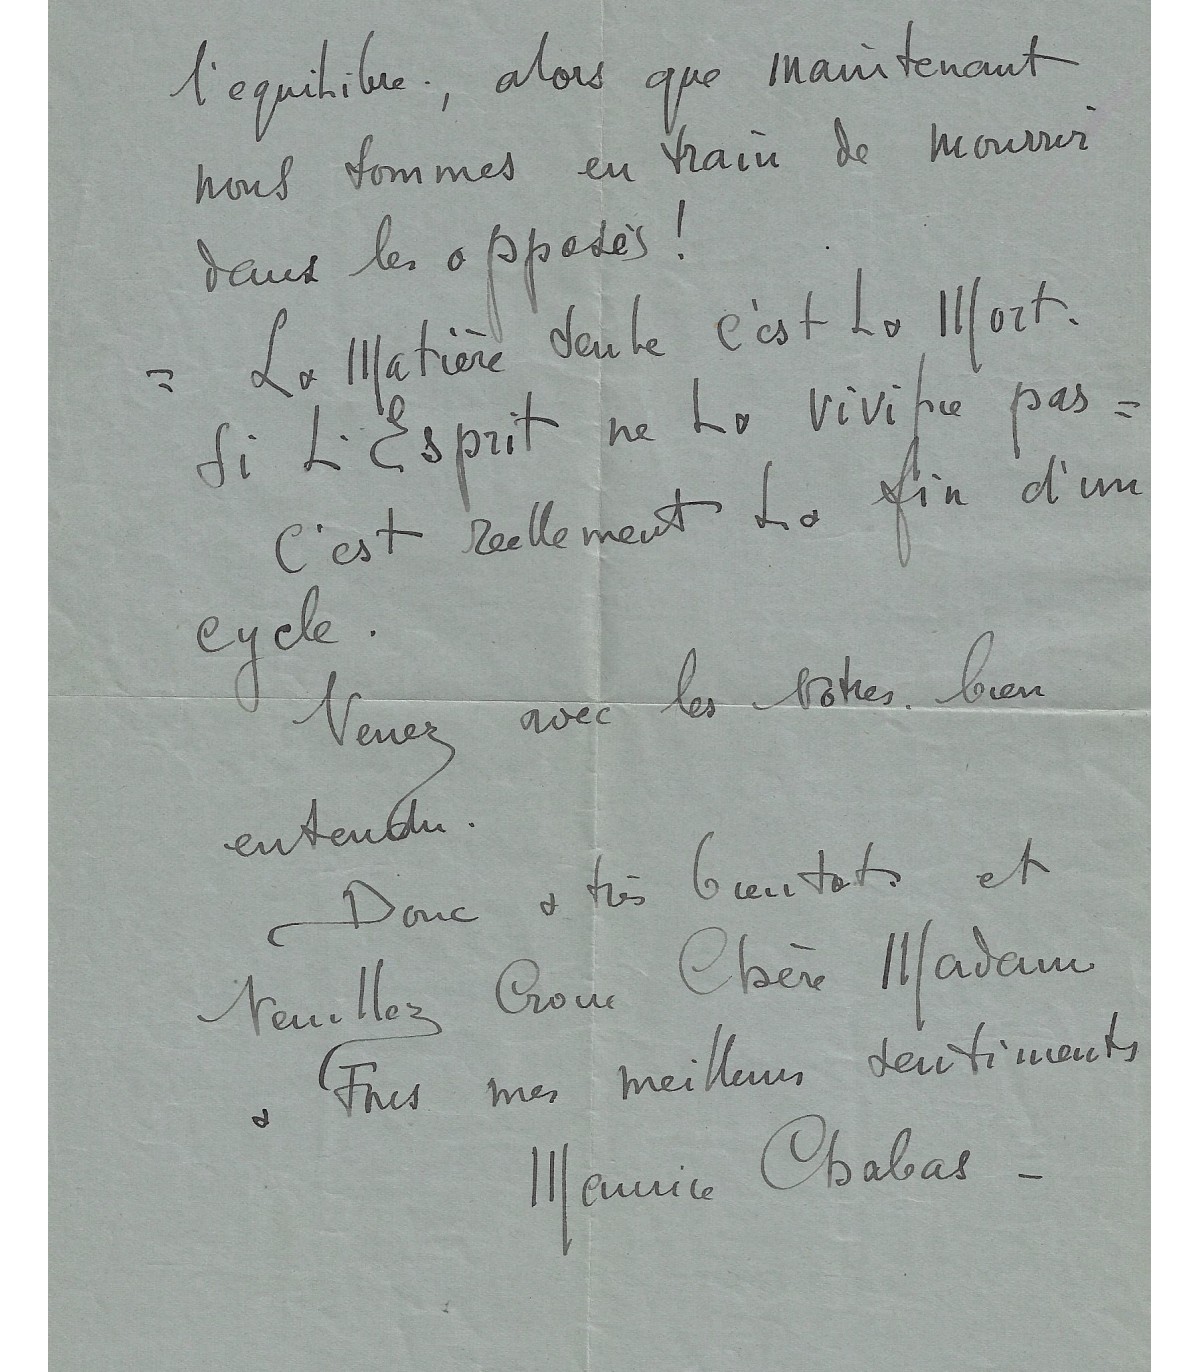 l'equilibre, alors que maintenant
nous sommes en train de mourrir
dans les opposés !
= La Matière seule c'est La Mort.
si L'Esprit ne La vivifie pas =
C'est reellement La fin d'un
cycle.
Venez avec les votres. bien
entendu.
Donc a très bientot et
Veuillez Croire Chère Madame
a Tous mes meilleurs sentiments
Maurice Chabas -